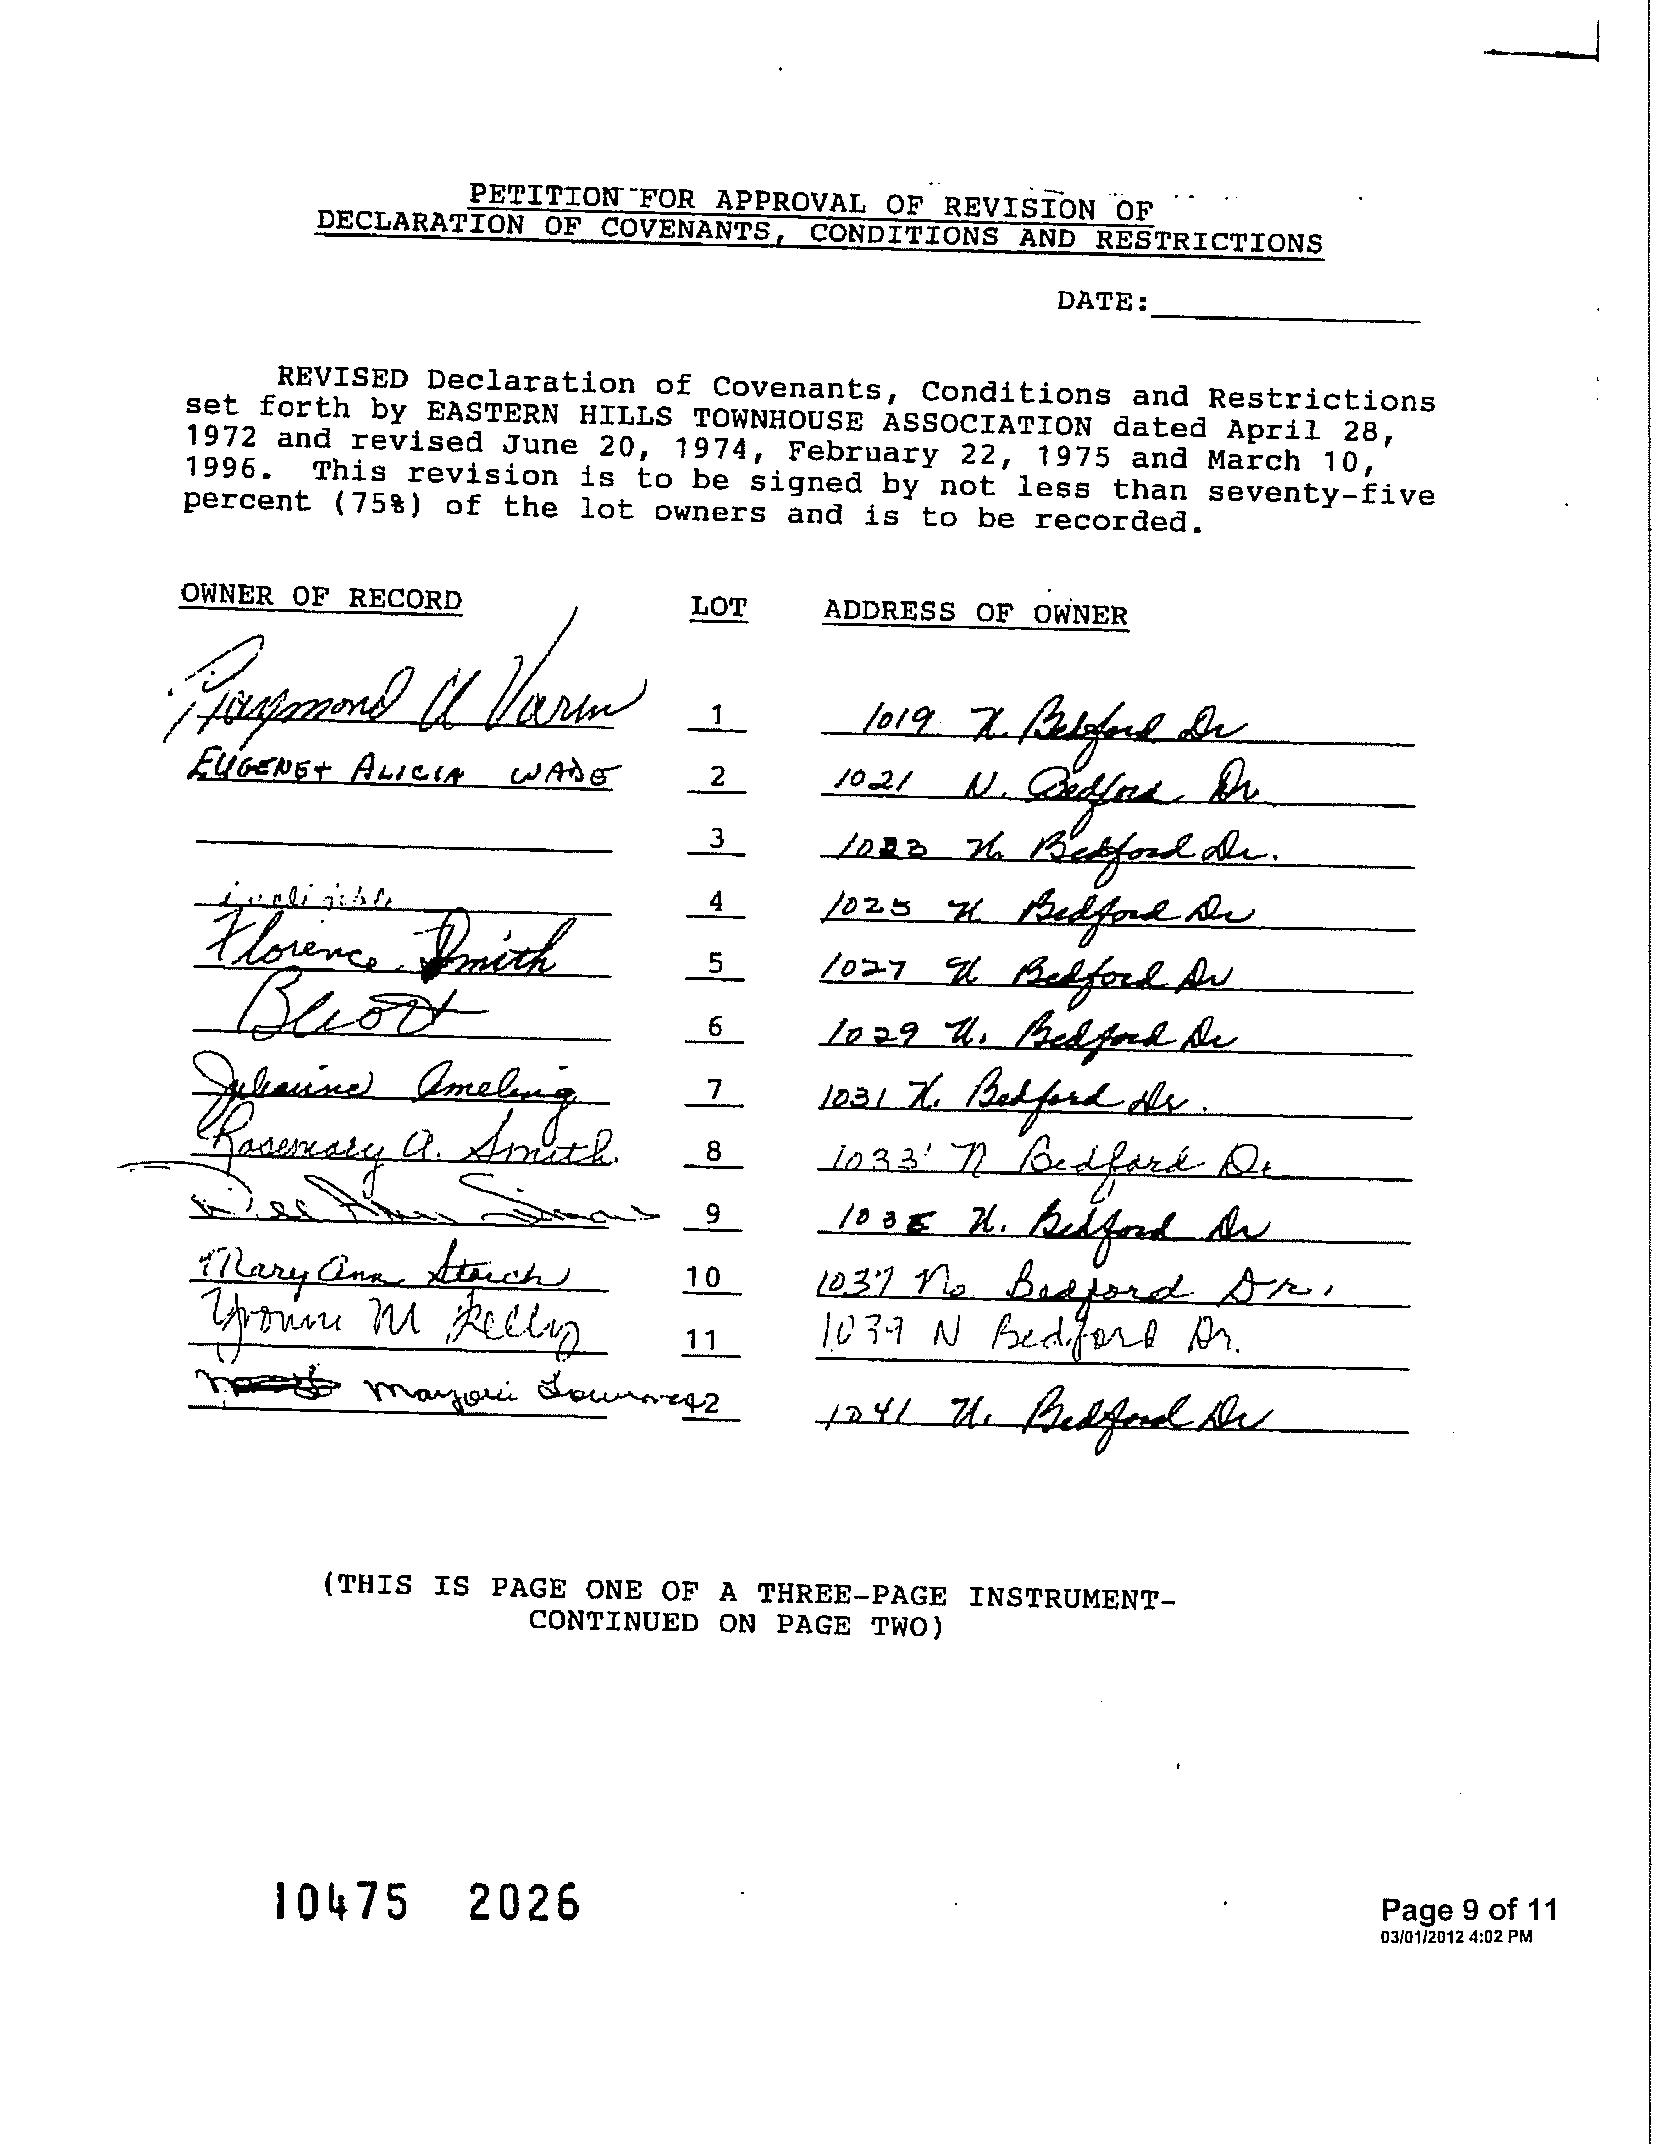 PETITION FOR APPROVAL OF REVISION OF
DECLARATION OF COVENANTS, CONDITIONS AND RESTRICTIONS
DATE:
REVISED Declaration of Covenants, Conditions and Restrictions
set forth by EASTERN HILLS TOWNHOUSE ASSOCIATION dated April 28,
1972 and revised June 20, 1974, February 22, 1975 and March 10,
1996. This revision is to be signed by not less than seventy-five
percent (75%) of the lot owners and is to be recorded.
OWNER OF RECORD LOT ADDRESS OF OWNER
Raymond 1 1019 N. Bedford Dr
EUGENE + ALICIA WADE 2 1021 N. Bedford Dr
3 1023 N. Bedford Dr.
4 1025 N Bedford Dr
Florence Smith 5 1027 N Bedford Dr
6 1029 N. Bedford Dr
Julianne Ameling 7 1031 N. Bedford Dr.
Rosemary A. Smith 8 1033 N Bedford Dr
9 1035 N. Bedford Dr
Mary Ann 10 1037 No Bedford Dr.
Yvonne M Kelly 11 1039 N Bedford Dr.
Marjorie 12 1041 N. Bedford Dr
(THIS IS PAGE ONE OF A THREE-PAGE INSTRUMENT-
CONTINUED ON PAGE TWO)
10475 2026
Page 9 of 11
03/01/2012 4:02 PM